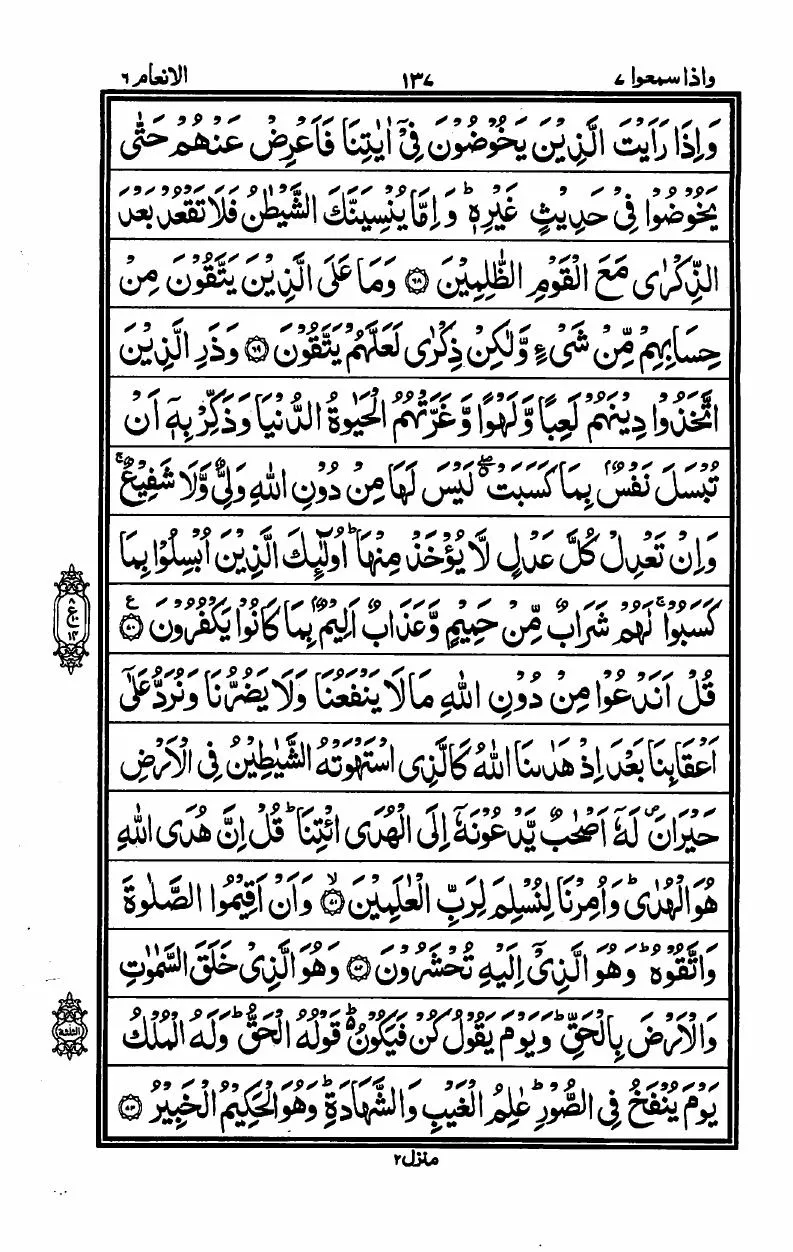 واذا سمعوا ۷ ۱۳۷ الانعام ۶
وَاِذَا رَاَيْتَ الَّذِيْنَ يَخُوْضُوْنَ فِىْٓ اٰيٰتِنَا فَاَعْرِضْ عَنْهُمْ حَتّٰى
يَخُوْضُوْا فِىْ حَدِيْثٍ غَيْرِهٖ ؕ وَاِمَّا يُنْسِيَنَّكَ الشَّيْطٰنُ فَلَا تَقْعُدْ بَعْدَ
الذِّكْرٰى مَعَ الْقَوْمِ الظّٰلِمِيْنَ ۶۸ وَمَا عَلَى الَّذِيْنَ يَتَّقُوْنَ مِنْ
حِسَابِهِمْ مِّنْ شَىْءٍ وَّلٰكِنْ ذِكْرٰى لَعَلَّهُمْ يَتَّقُوْنَ ۶۹ وَذَرِ الَّذِيْنَ
اتَّخَذُوْا دِيْنَهُمْ لَعِبًا وَّلَهْوًا وَّغَرَّتْهُمُ الْحَيٰوةُ الدُّنْيَا وَذَكِّرْ بِهٖٓ اَنْ
تُبْسَلَ نَفْسٌۢ بِمَا كَسَبَتْ ۖ لَيْسَ لَهَا مِنْ دُوْنِ اللّٰهِ وَلِىٌّ وَّلَا شَفِيْعٌ ۚ
وَاِنْ تَعْدِلْ كُلَّ عَدْلٍ لَّا يُؤْخَذْ مِنْهَا ؕ اُولٰٓئِكَ الَّذِيْنَ اُبْسِلُوْا بِمَا
كَسَبُوْا ۚ لَهُمْ شَرَابٌ مِّنْ حَمِيْمٍ وَّعَذَابٌ اَلِيْمٌۢ بِمَا كَانُوْا يَكْفُرُوْنَ ۷۰ ع
۸ ع ۱۰ ۱۴
قُلْ اَنَدْعُوْا مِنْ دُوْنِ اللّٰهِ مَا لَا يَنْفَعُنَا وَلَا يَضُرُّنَا وَنُرَدُّ عَلٰٓى
اَعْقَابِنَا بَعْدَ اِذْ هَدٰىنَا اللّٰهُ كَالَّذِى اسْتَهْوَتْهُ الشَّيٰطِيْنُ فِى الْاَرْضِ
حَيْرَانَ ۪ لَهٗٓ اَصْحٰبٌ يَّدْعُوْنَهٗٓ اِلَى الْهُدَى ائْتِنَا ؕ قُلْ اِنَّ هُدَى اللّٰهِ
هُوَ الْهُدٰى ؕ وَاُمِرْنَا لِنُسْلِمَ لِرَبِّ الْعٰلَمِيْنَ ۷۱ ۙ وَاَنْ اَقِيْمُوا الصَّلٰوةَ
وَاتَّقُوْهُ ؕ وَهُوَ الَّذِىْٓ اِلَيْهِ تُحْشَرُوْنَ ۷۲ وَهُوَ الَّذِىْ خَلَقَ السَّمٰوٰتِ
وَالْاَرْضَ بِالْحَقِّ ؕ وَيَوْمَ يَقُوْلُ كُنْ فَيَكُوْنُ ؕ قَوْلُهُ الْحَقُّ ؕ وَلَهُ الْمُلْكُ
الثلثة
يَوْمَ يُنْفَخُ فِى الصُّوْرِ ؕ عٰلِمُ الْغَيْبِ وَالشَّهَادَةِ ؕ وَهُوَ الْحَكِيْمُ الْخَبِيْرُ ۷۳
منزل۲